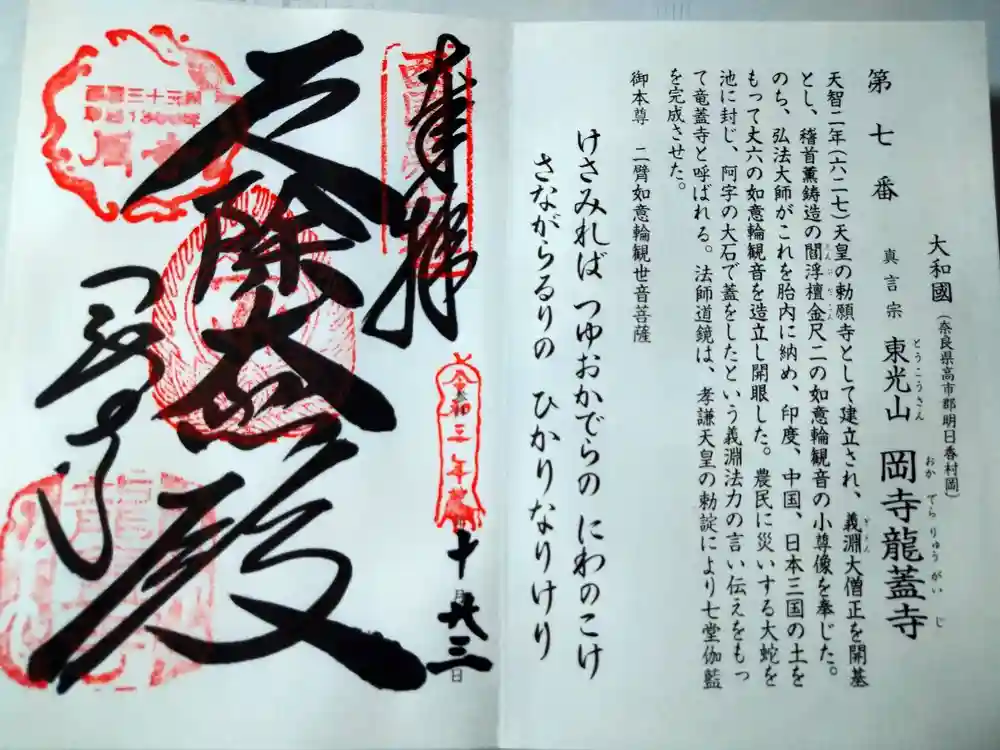 第七番
大和國(奈良県高市郡明日香村岡)
真言宗 東光山 岡寺龍蓋寺
とうこうさん おかでらりゅうがいじ
天智二年(六二七)天皇の勅願寺として建立され、義淵大僧正を開基
とし、稽首薫鋳造の閻浮檀金尺二の如意輪観音の小尊像を奉じた。
のち、弘法大師がこれを胎内に納め、印度、中国、日本三国の土を
もって丈六の如意輪観音を造立し開眼した。農民に災いする大蛇を
池に封じ、阿字の大石で蓋をしたという義淵法力の言い伝えをもっ
て竜蓋寺と呼ばれる。法師道鏡は、孝謙天皇の勅諚により七堂伽藍
を完成させた。
御本尊 二臂如意輪観世音菩薩
けさみれば つゆおかでらの にわのこけ
さながらるりの ひかりなりけり
奉拝
令和三年
十月廿三日
厄除大悲殿